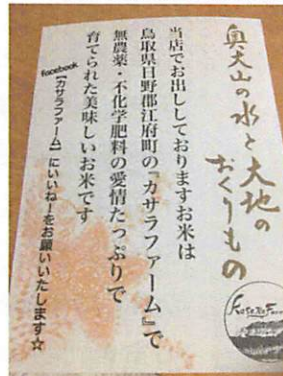 奥大山の水と大地の
おくりもの
当店でお出ししておりますお米は
鳥取県日野郡江府町の『カサラファーム』で
無農薬・不化学肥料の愛情たっぷりで
育てられた美味しいお米です
facebook
【カサラファーム】にいいねーをお願いいたします☆